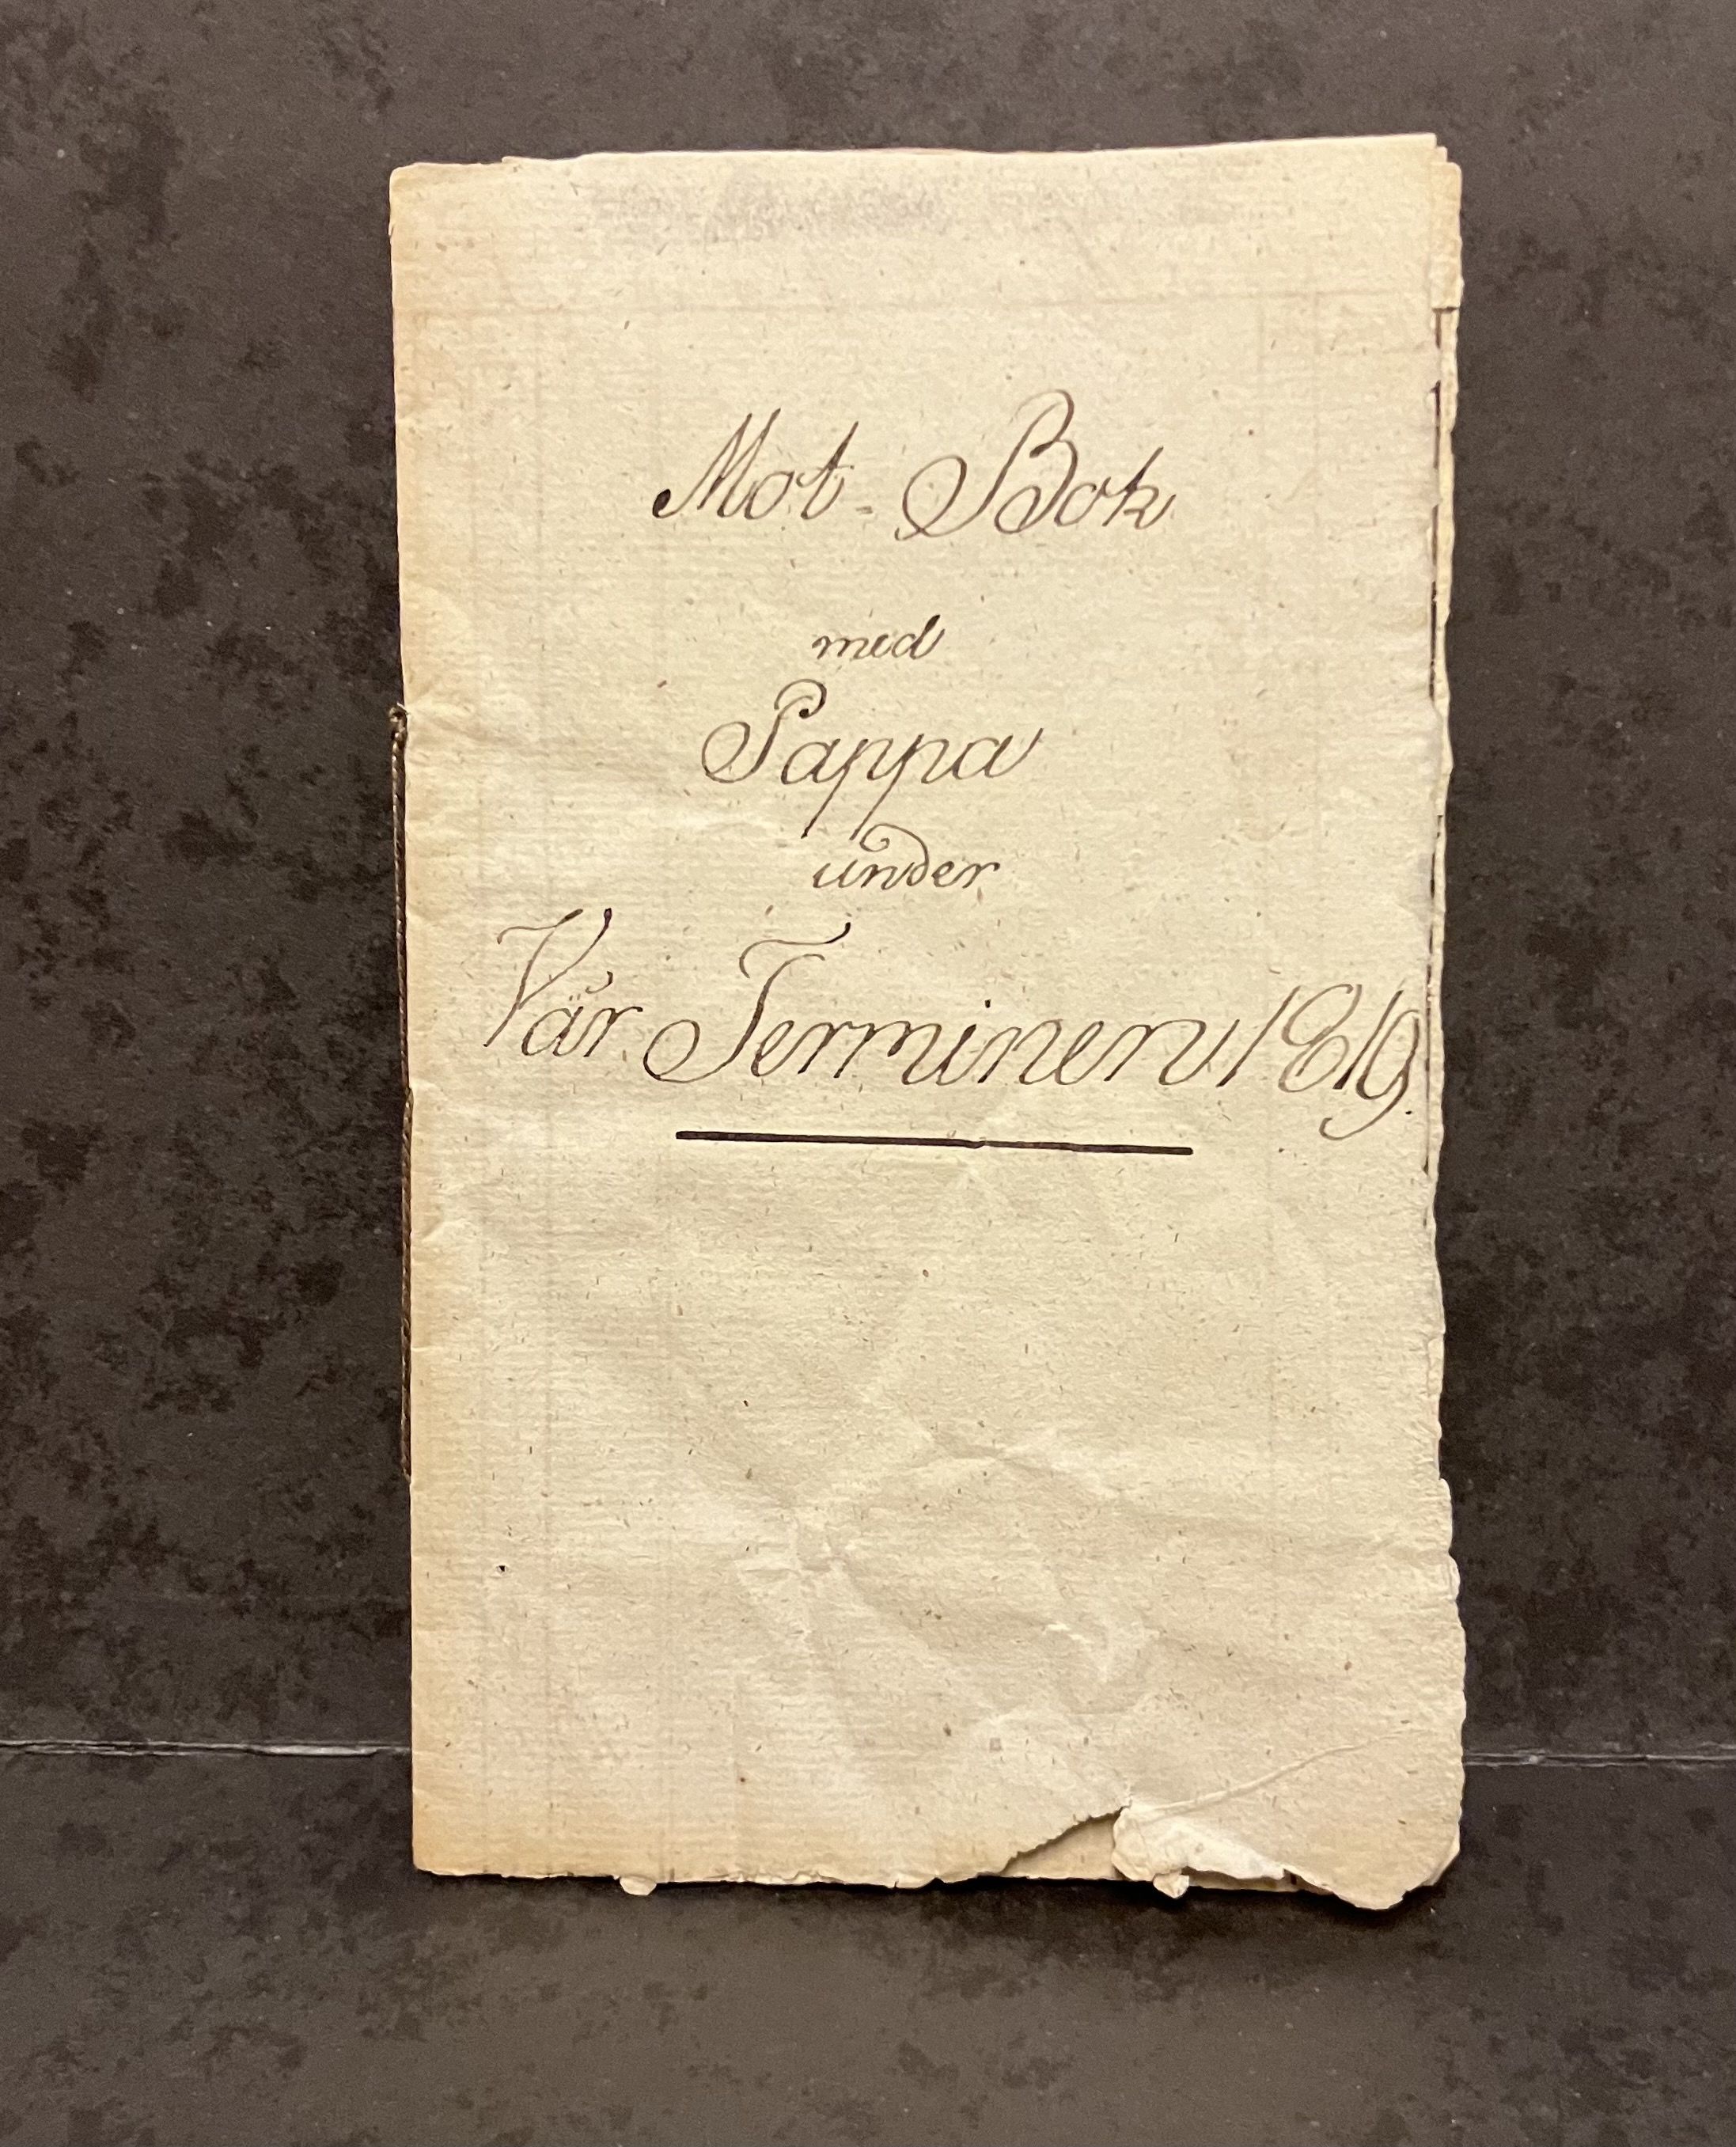 Mot-Bok
med
Pappa
under
Vår Terminen 1819.